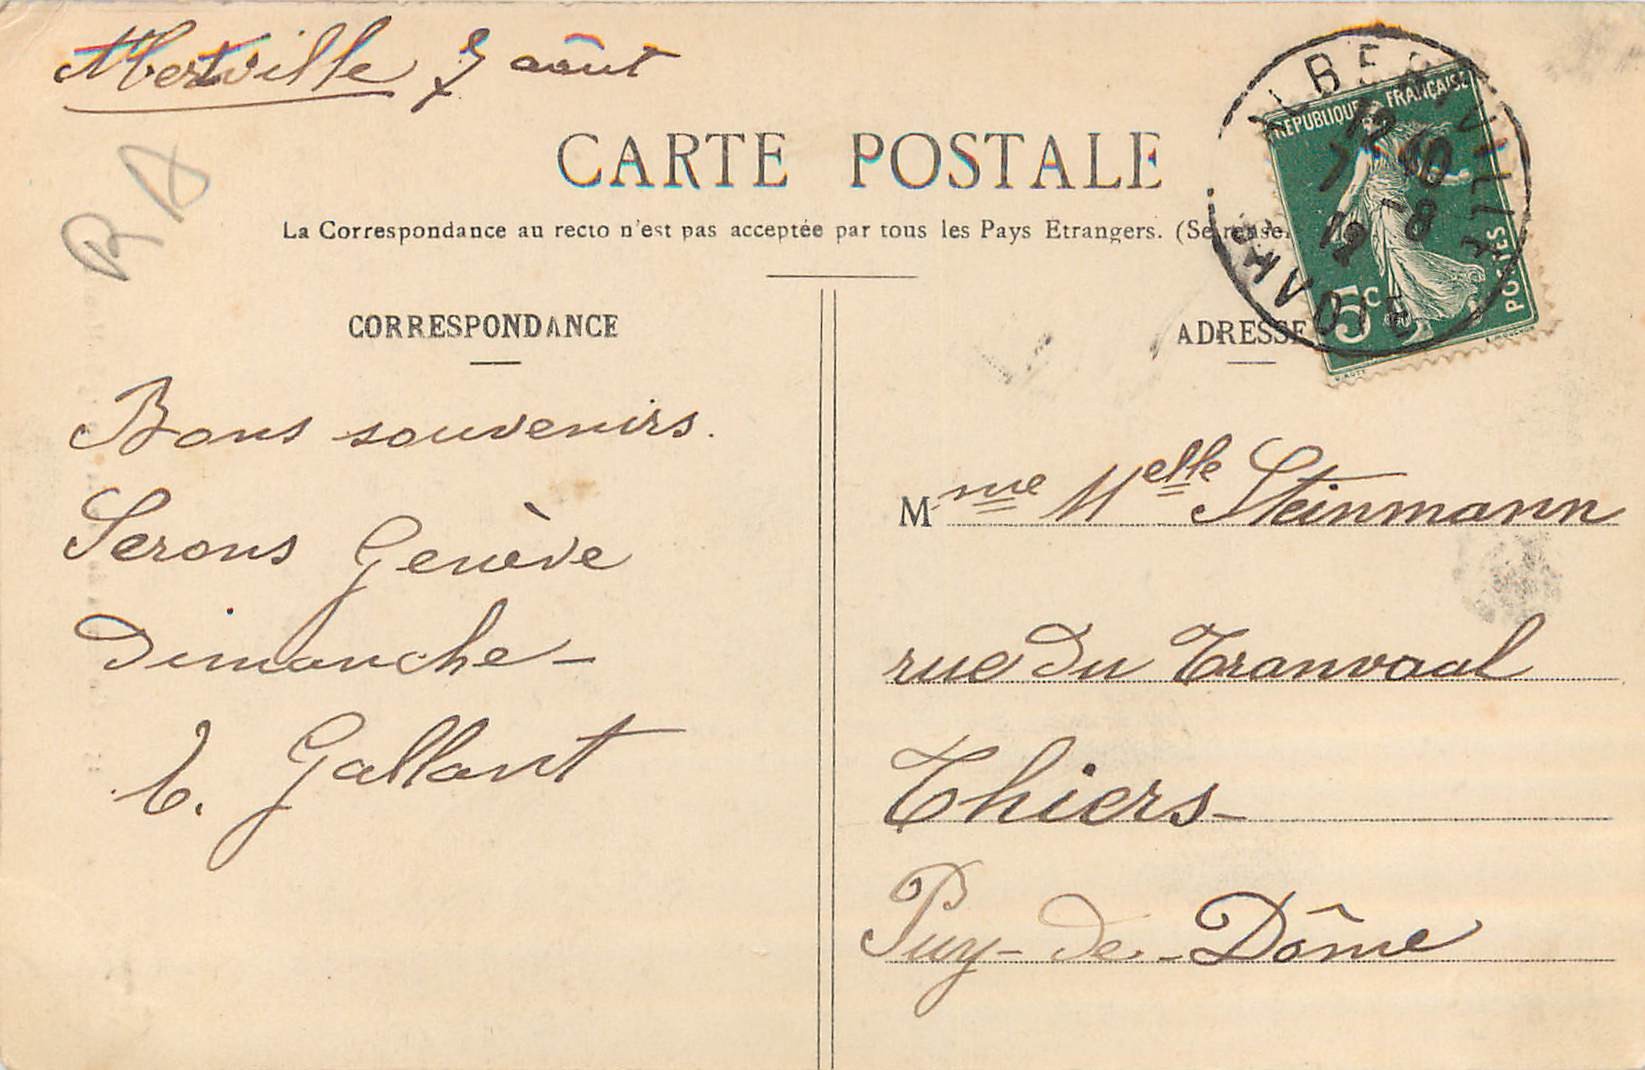 Albertville 7 août
RA
CARTE POSTALE
La Correspondance au recto n'est pas acceptée par tous les Pays Etrangers. (Se rense
CORRESPONDANCE
ADRESSE
RÉPUBLIQUE FRANÇAISE
POSTES
5c
ALBERTVILLE
12 40
7 -8
12
SAVOIE
Bons souvenirs.
Serons Genève
Dimanche -
Gallant
Mme Melle Steinmann
rue du Tranvaal
Thiers -
Puy-de-Dôme